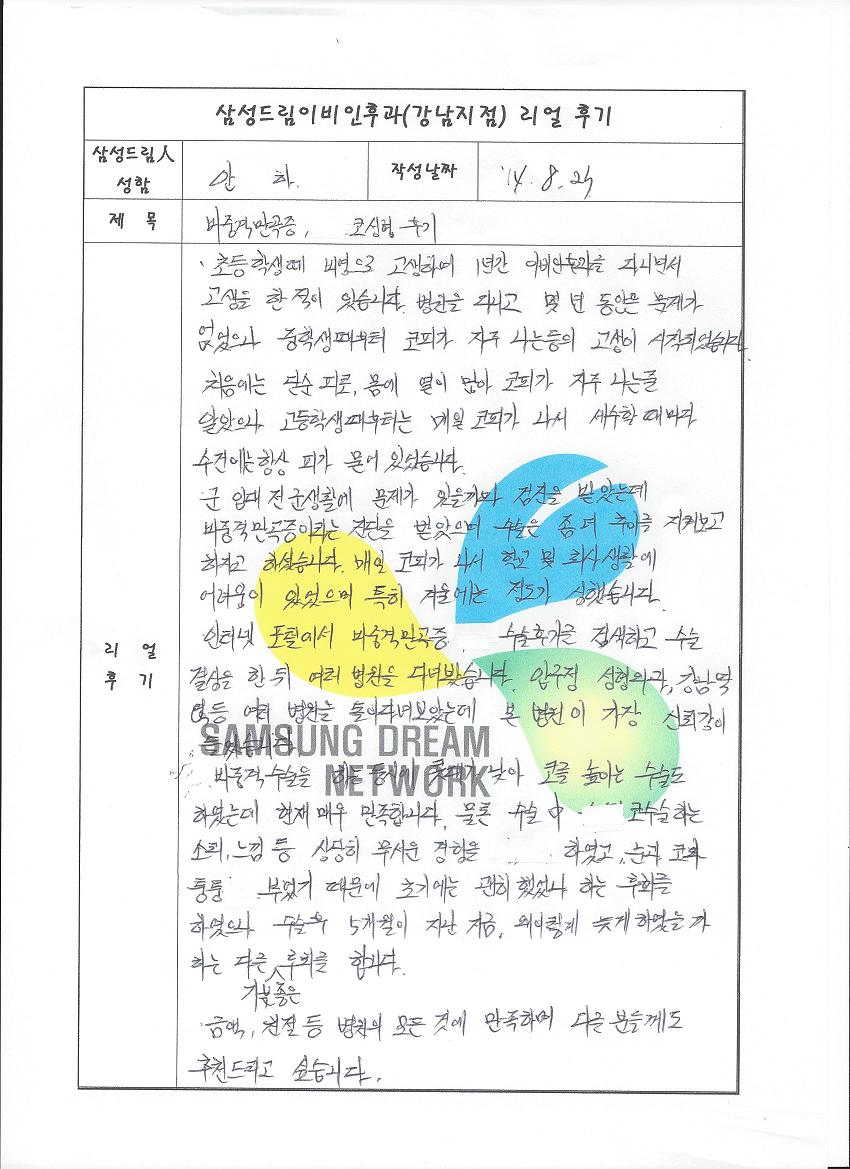 삼성드림이비인후과(강남지점) 리얼 후기
삼성드림人 성함 안 하. 작성날짜 '14. 8. 29
제 목 비중격만곡증, 코성형 후기
리 얼 후 기
초등학생때 비염으로 고생하여 1년간 이비인후과를 다니면서
고생을 한 적이 있습니다. 병원을 다니고 몇 년 동안은 문제가
없었으나 중학생때부터 코피가 자주 나는등의 고생이 시작되었습니다.
처음에는 단순 피로, 몸에 열이 많아 코피가 자주 나는줄
알았으나 고등학생때부터는 매일 코피가 나서 세수할 때마다
수건에는 항상 피가 묻어 있었습니다.
군 입대 전 군생활에 문제가 있을까봐 검진을 받았는데
비중격만곡증이라는 진단을 받았으며 수술은 좀 더 추이를 지켜보고
하자고 하셨습니다. 매일 코피가 나서 학교 및 회사생활에
어려움이 있었으며 특히 겨울에는 정도가 심했습니다.
인터넷 포털에서 비중격만곡증, 수술후기를 검색하고 수술
결심을 한 뒤 여러 병원을 다녀봤습니다. 압구정 성형외과, 강남역
등 여러 병원을 돌아다녀보았는데 본 병원이 가장 신뢰감이
들었습니다.
SAMSUNG DREAM
NETWORK
비중격수술을 하는 동시에 콧대가 낮아 코를 높이는 수술도
하였는데 현재 매우 만족합니다. 물론 수술 中 코수술하는
소리, 느낌 등 상당히 무서운 경험을 하였고, 눈과 코가
퉁퉁 부었기 때문에 초기에는 괜히 했었나 하는 후회를
하였으나 수술후 5개월이 지난 지금, 왜이렇게 늦게 하였을까
하는 다른 후회를 합니다.
기분좋은
금액, 친절 등 병원의 모든 것에 만족하며 다른 분들께도
추천드리고 싶습니다.